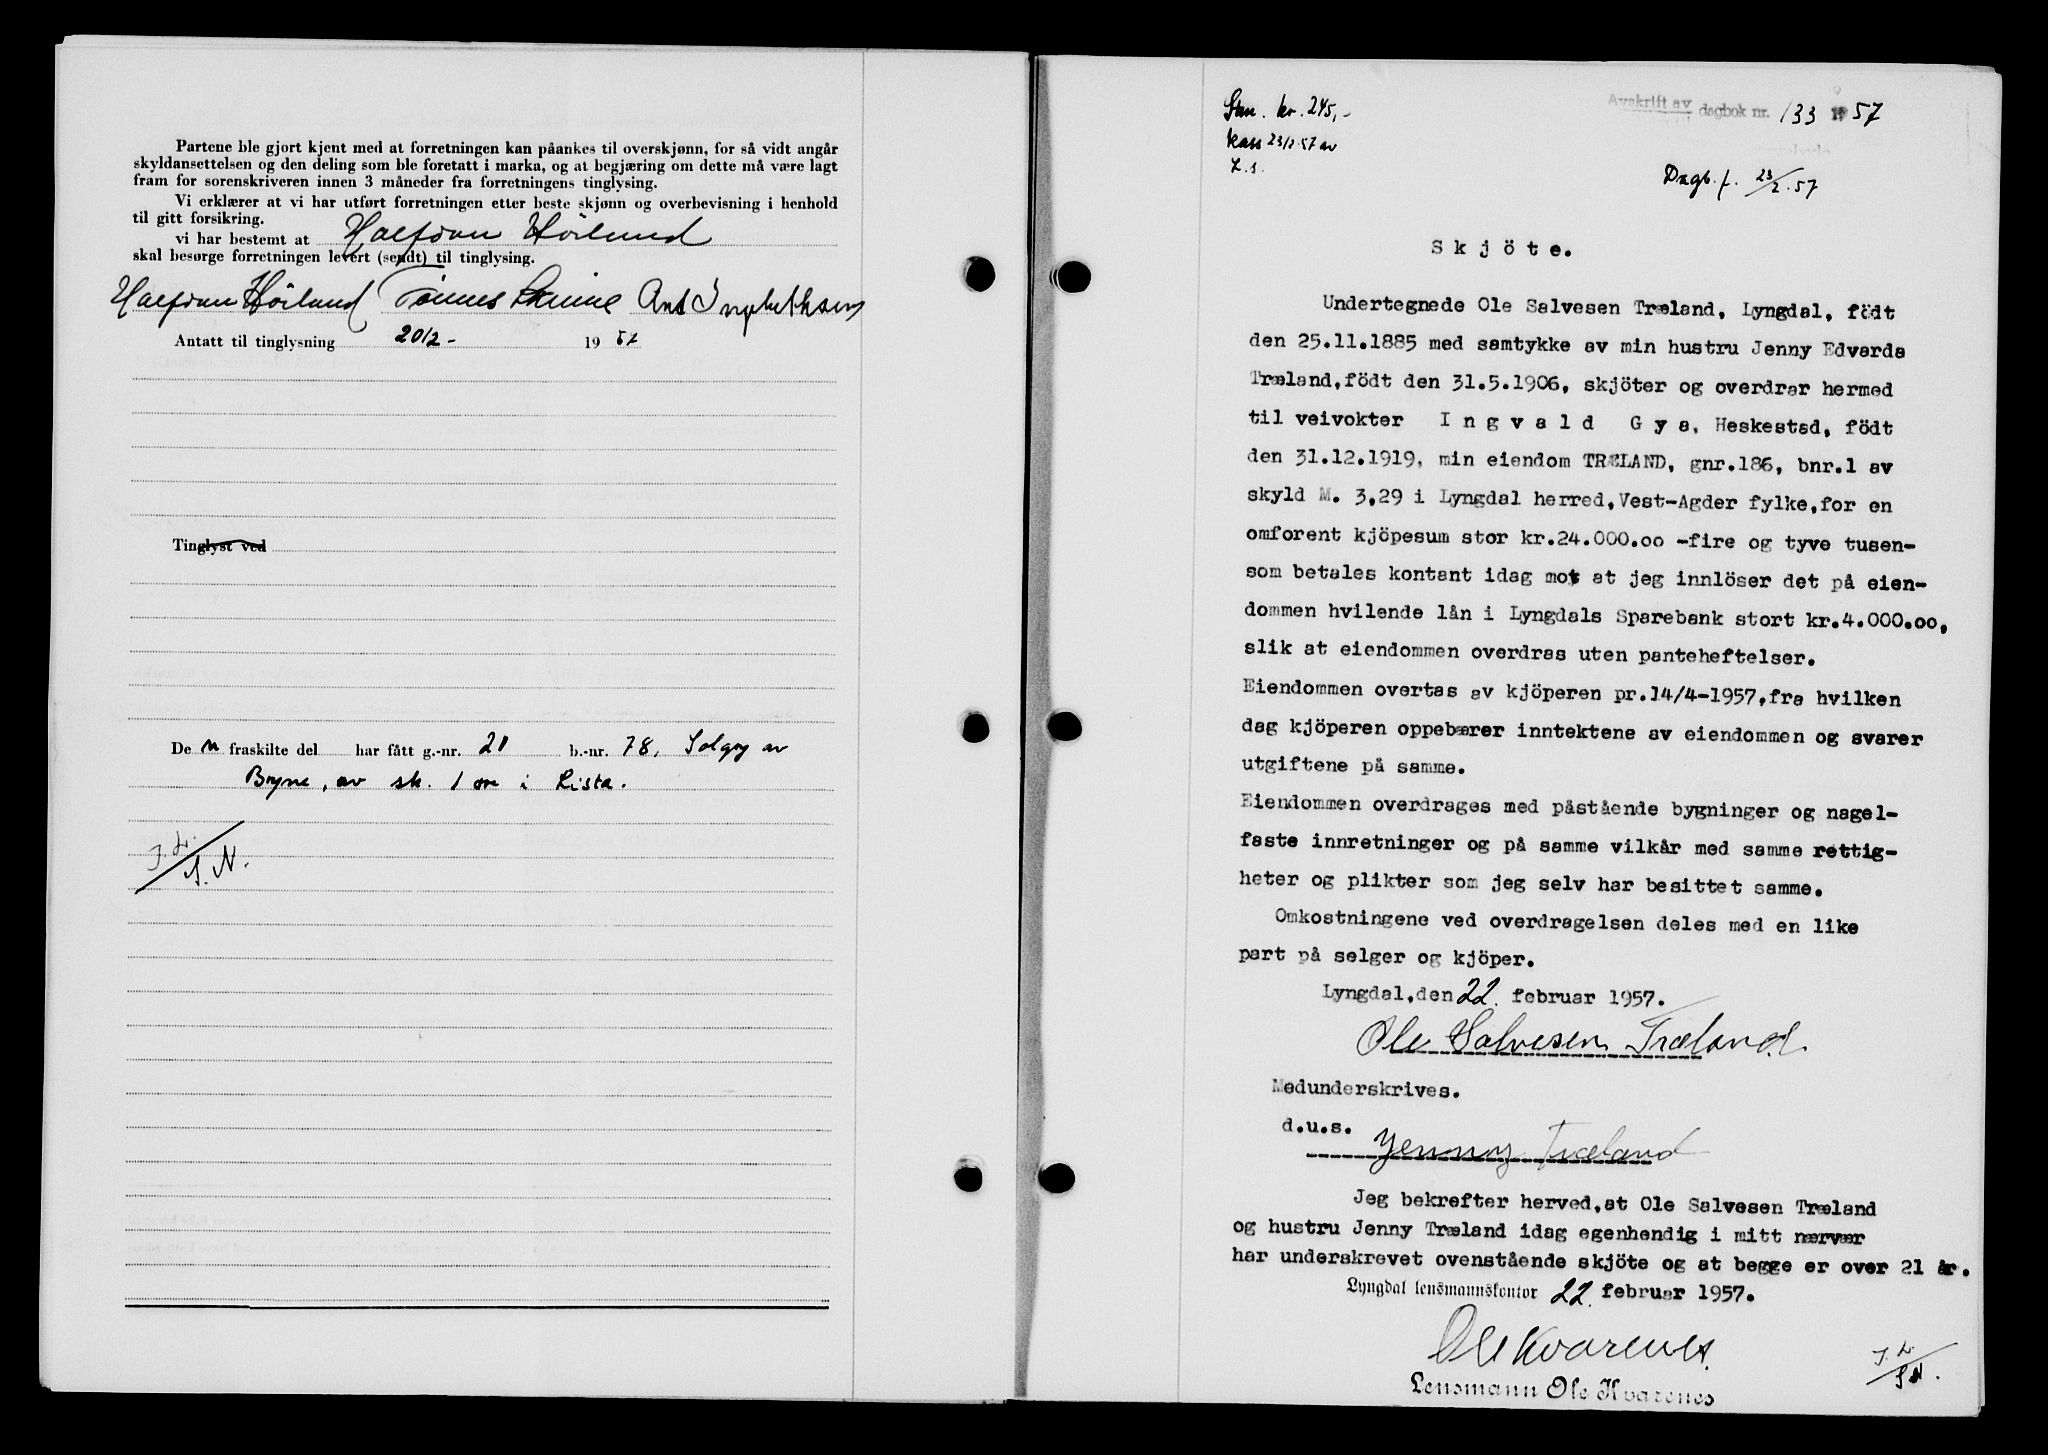 Partene ble gjort kjent med at forretningen kan påankes til overskjønn, for så vidt angår
skyldansettelsen og den deling som ble foretatt i marka, og at begjæring om dette må være lagt
fram for sorenskriveren innen 3 måneder fra forretningens tinglysing.
Vi erklærer at vi har utført forretningen etter beste skjønn og overbevisning i henhold
til gitt forsikring.
vi har bestemt at Halfdan Hörland
skal besørge forretningen levert (sendt) til tinglysing.
Halfdan Hörland Tönnes
Antatt til tinglysning 20/2- 19 57
Tinglyst ved
De n fraskilte del har fått g.-nr. 21 b.-nr. 78, Solgry av
Bryne, av sk. 1 øre i Lista.
J. L.
S. N.
Stm. kr. 245,-
kass 23/2 57 av
L.s.
Avskrift av dagbok nr. 133 1957
Dagb. f. 23/2. 57
Skjöte.
Undertegnede Ole Salvesen Træland, Lyngdal, födt
den 25.11.1885 med samtykke av min hustru Jenny Edvarda
Træland,födt den 31.5.1906, skjöter og overdrar hermed
til veivokter Ingvald Gya, Heskestad, födt
den 31.12.1919, min eiendom TRÆLAND, gnr.186, bnr.1 av
skyld M. 3,29 i Lyngdal herred,Vest-Agder fylke,for en
omforent kjöpesum stor kr.24.000.oo -fire og tyve tusen-
som betales kontant idag mot at jeg innlöser det på eien-
dommen hvilende lån i Lyngdals Sparebank stort kr.4.000.oo,
slik at eiendommen overdras uten panteheftelser.
Eiendommen overtas av kjöperen pr.14/4-1957,fra hvilken
dag kjöperen oppebærer inntektene av eiendommen og svarer
utgiftene på samme.
Eiendommen overdrages med påstående bygninger og nagel-
faste innretninger og på samme vilkår med samme rettig-
heter og plikter som jeg selv har besittet samme.
Omkostningene ved overdragelsen deles med en like
part på selger og kjöper.
Lyngdal,den 22. februar 1957.
Ole Salvesen Træland.
Medunderskrives.
d.u.s.
Jenny Træland
Jeg bekrefter herved,at Ole Salvesen Træland
og hustru Jenny Træland idag egenhendig i mitt nærvær
har underskrevet ovenstående skjöte og at begge er over 21 år.
Lyngdal lensmannskontor 22. februar 1957.
Ole Kvarenes.
Lensmann Ole Kvarenes
J. L.
S N.